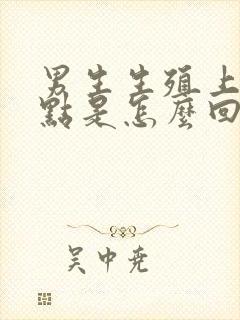 男生生殖上
點是怎麼回
吴中尧